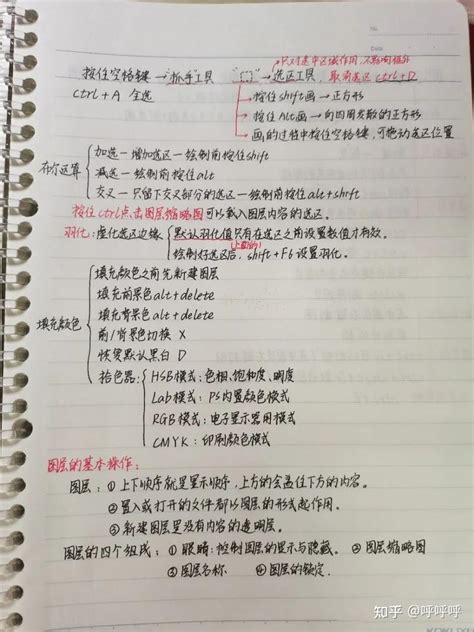 No.
Date
只对选中区域作用，不影响框外
按住空格键→"抓手工具 "[ ]"→选区工具，取消选区 ctrl+D
ctrl+A 全选 →按住shift画→正方形
→按住Alt画→向四周发散的正方形
→画的过程中按住空格键，可拖动选区位置
布尔运算
加选-增加选区-绘制前按住shift
减选-绘制前按住alt
交叉-只留下交叉部分的选区-绘制前按住alt+shift
按住ctrl点击图层缩略图可以载入图层内容的选区。
羽化：虚化选区边缘
默认羽化值只有在选区之前设置数值才有效。
绘制好选区后，shift+F6设置羽化。
填充颜色
填充颜色之前先新建图层
填充前景色alt+delete
填充背景色alt+delete
前/背景色切换 X
恢复默认黑白 D
拾色器：
HSB模式：色相、饱和度、明度
Lab模式：PS内置颜色模式
RGB模式：电子显示器用模式
CMYK：印刷颜色模式
图层的基本操作：
图层：①上下顺序就是显示顺序，上方的会盖住下方的内容。
②置入或打开的文件都以图层的形式起作用。
③新建图层是没有内容的透明层。
图层的四个组成：①眼睛：控制图层的显示与隐藏。 ②图层缩略图
③图层名称 ④图层的锁定。
知乎 @呼呼呼